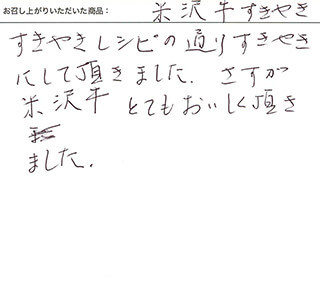 お召し上がりいただいた商品： 米沢牛すきやき
すきやきレシピの通りすきやき
にして頂きました. さすが
米沢牛 とてもおいしく頂き
ました.